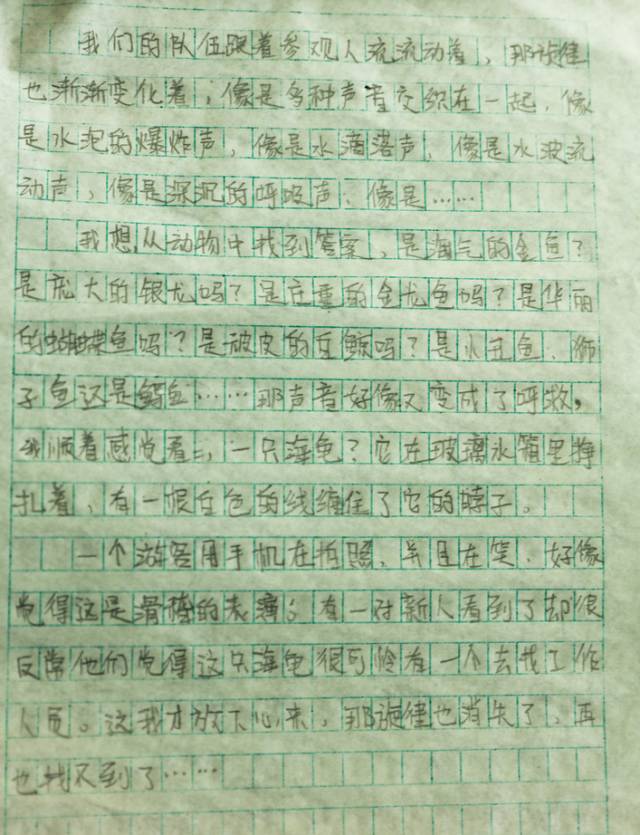 我们的队伍跟着参观人流流动着，那旋律
也渐渐变化着，像是多种声音交织在一起，像
是水泡的爆炸声，像是水滴落声，像是水波流
动声，像是深沉的呼吸声，像是……
我想从动物中找到答案，是淘气的金鱼？
是庞大的银龙吗？是庄重的金龙鱼吗？是华丽
的蝴蝶鱼吗？是顽皮的白鲸吗？是小丑鱼、狮
子鱼还是鳄鱼……那声音好像又变成了呼救，
我顺着感觉看，一只海龟？它在玻璃水箱里挣
扎着，有一根白色的线缠住了它的脖子。
一个游客用手机在拍照，并且在笑，好像
觉得这是滑稽的表演；有一对新人看到了却很
反常他们觉得这只海龟很可怜有一个去找工作
人员。这我才放下心来，那旋律也消失了，再
也找不到了……